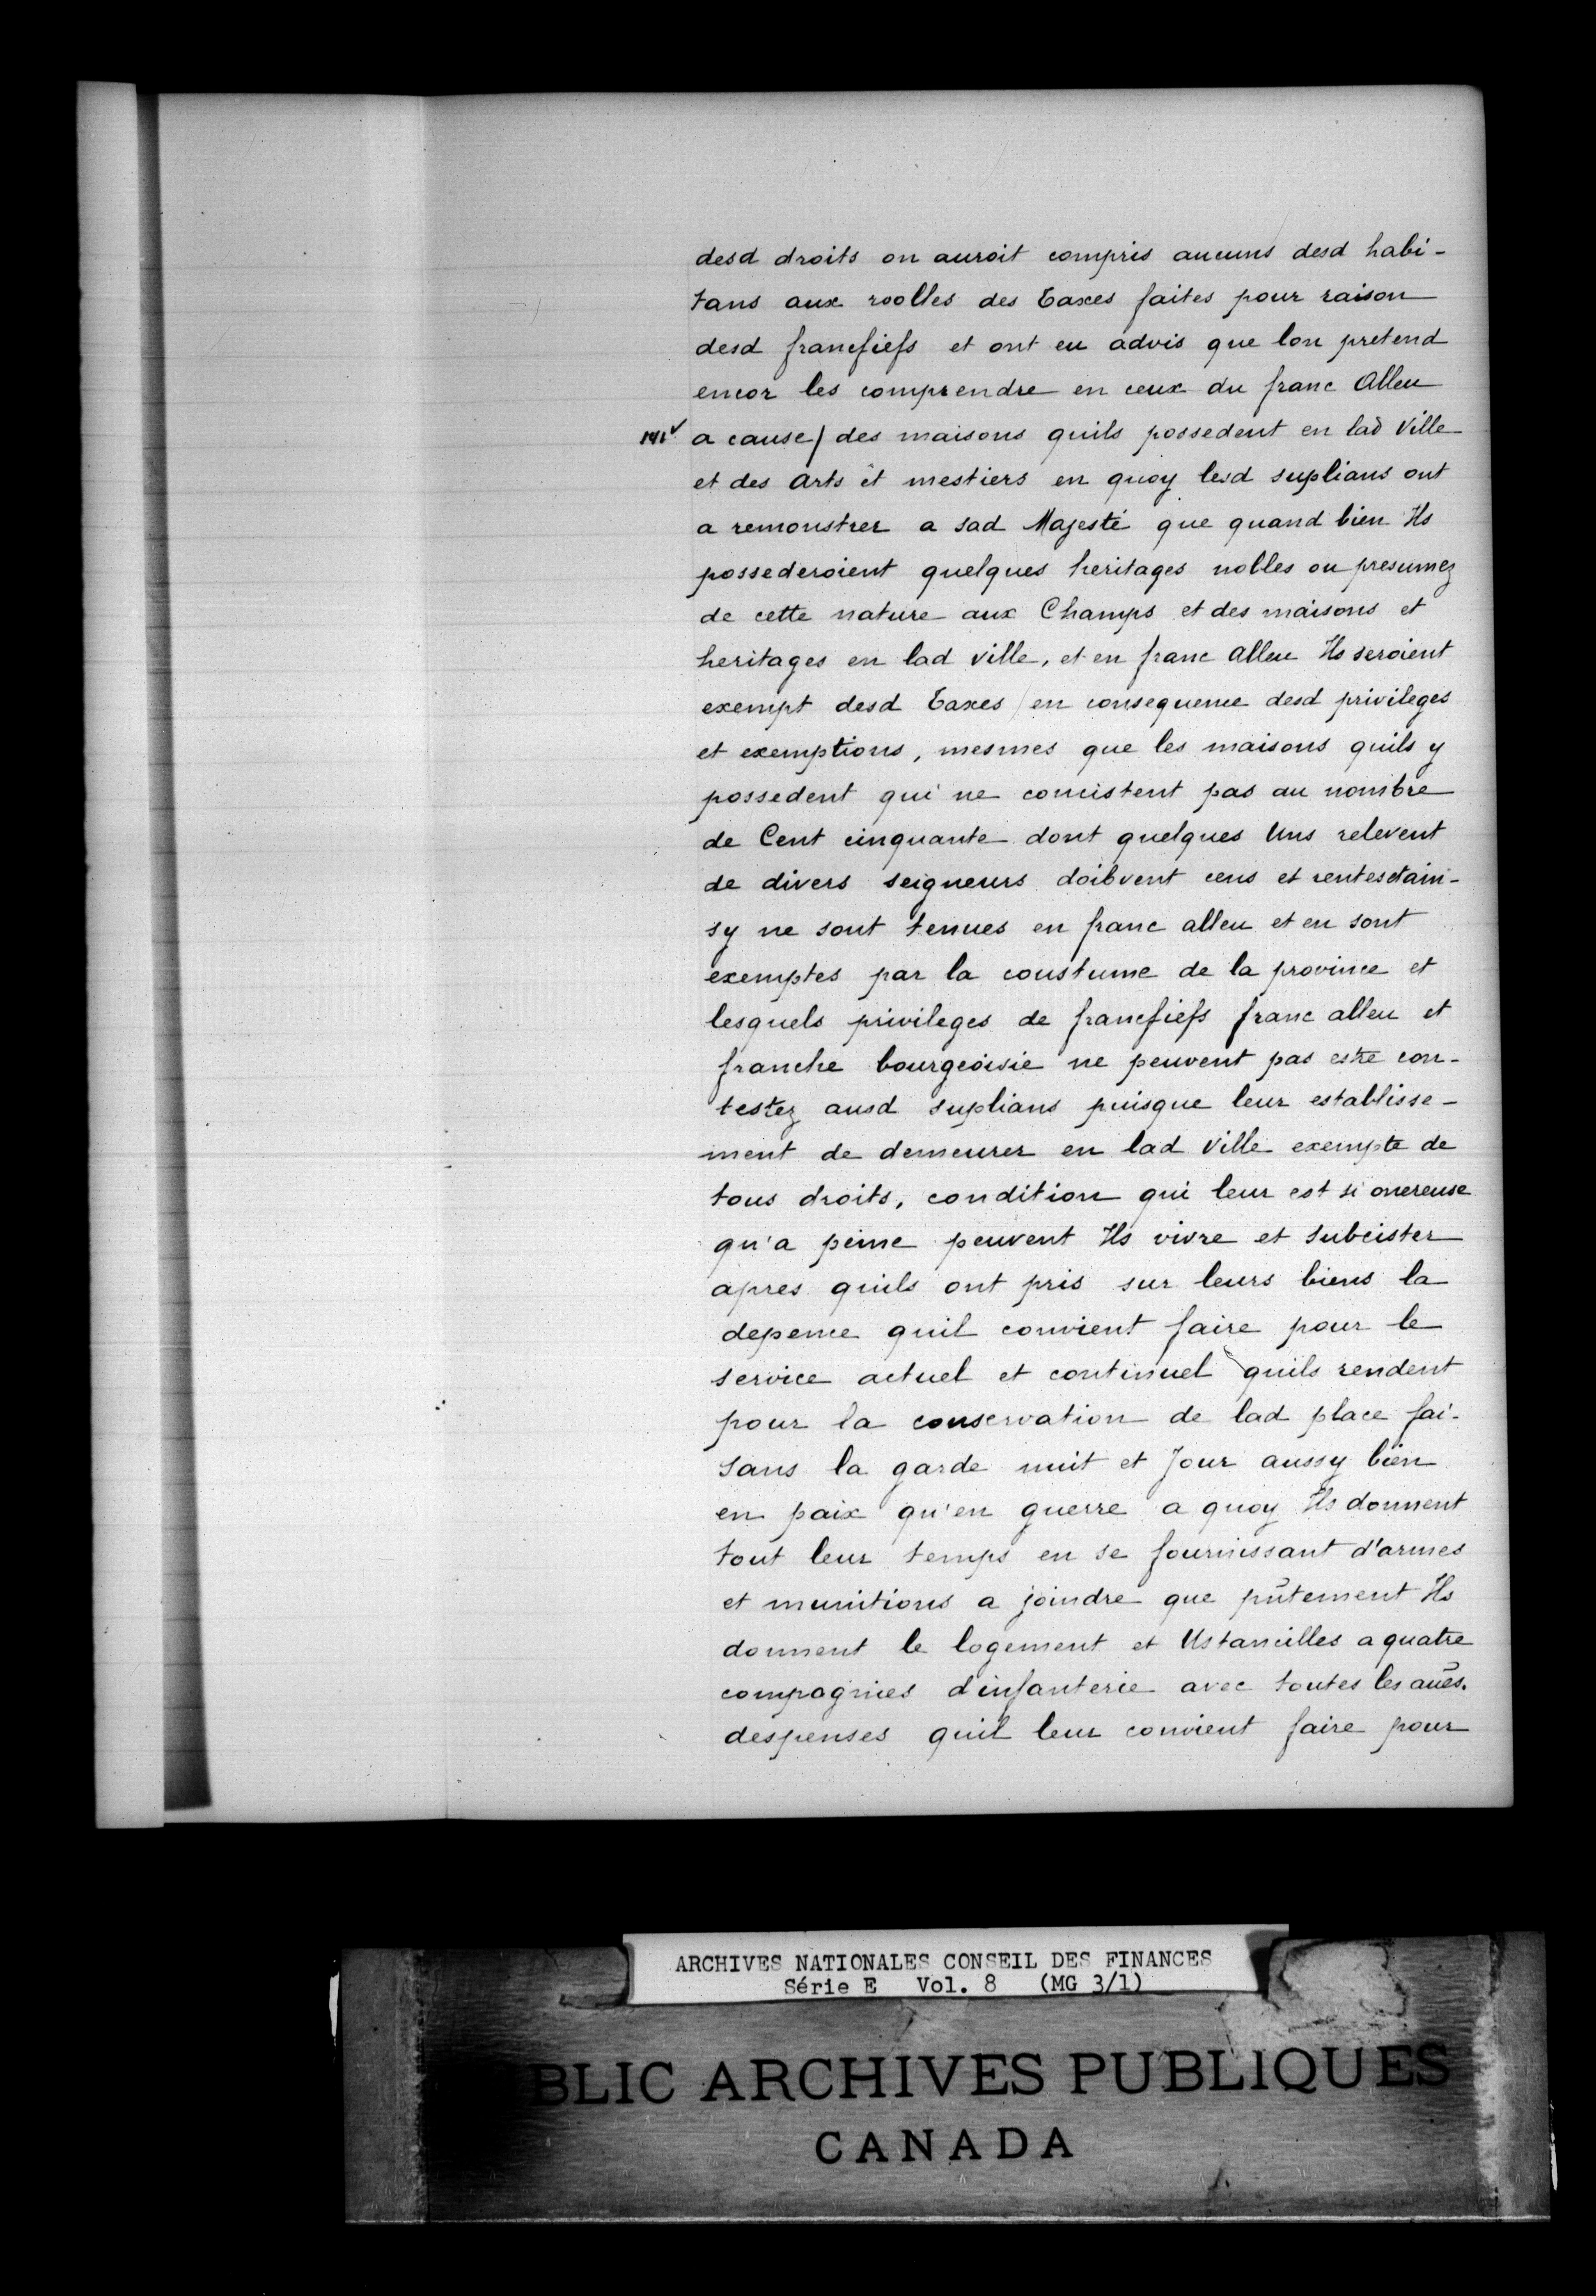 desd droits on auroit compris aucuns desd habi-
tans aux roolles des taxes faites pour raison
desd francfiefs et ont eu advis que lon pretend
encor les comprendre en ceux du franc Alleu
a cause/ des maisons quils possedent en lad Ville
et des arts et mestiers en quoy lesd suplians ont
a remonstrer a sad Majesté que quand bien Ils
possederoient quelques heritages nobles ou presumez
de cette nature aux Champs et des maisons et
heritages en lad ville, et en franc alleu Ils seroient
exempt desd taxes / en consequence desd privileges
et exemptions, mesmes que les maisons quils y
possedent qui ne concistent pas au nombre
de Cent cinquante dont quelques Uns relevent
de divers seigneurs doibvent cens et rentes et ain-
sy ne sont tenues en franc alleu et en sont
exemptes par la coustume de la province et
lesquels privileges de francfiefs franc alleu et
franche bourgeoisie ne peuvent pas estre con-
testez ausd suplians puisque leur establisse-
ment de demeurer en lad Ville exempte de
tous droits, condition qui leur est si onereuse
qu'a peine peuvent Ils vivre et subcister
apres quils ont pris sur leurs biens la
depence quil convient faire pour le
service actuel et continuel quils rendent
pour la conservation de lad place fai-
sans la garde nuit et Jour aussy bien
en paix qu'en guerre a quoy Ils donnent
tout leur temps en se fournissant d'armes
et munitions a joindre que pn̄tement Ils
donnent le logement et Ustancilles a quatre
compagnies d'infanterie avec toutes les aūes.
despenses quil leur convient faire pour
ARCHIVES NATIONALES CONSEIL DES FINANCES
Série E Vol. 8 (MG 3/1)
BLIC ARCHIVES PUBLIQUES
CANADA